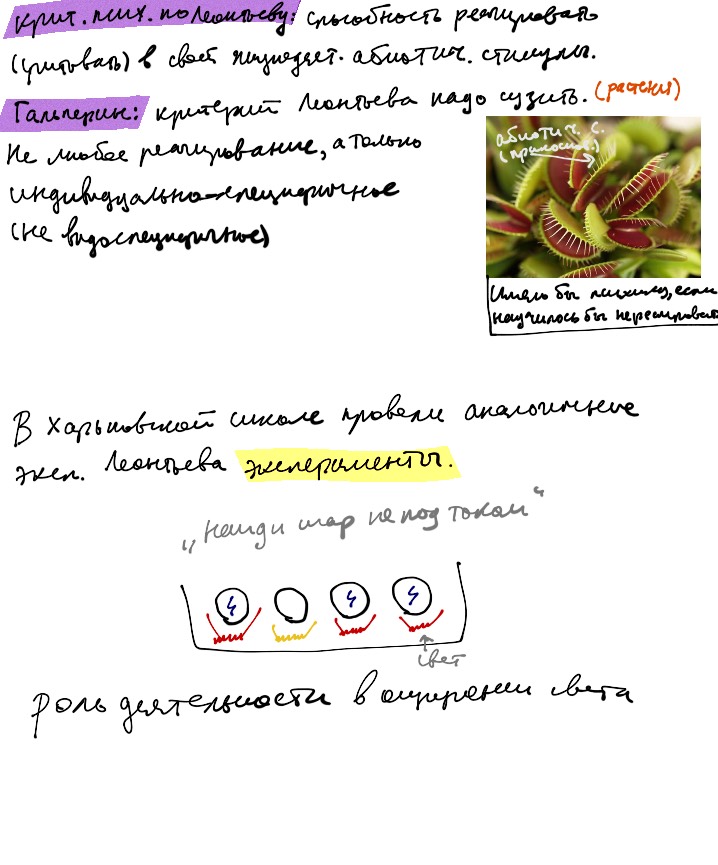 Крит. псих. по Леонтьеву: способность реагировать
(учитывать) в своей жизнедеят. абиотич. стимулы.
Гальперин: критерий Леонтьева надо сузить. (растения)
Не любое реагирование, а только
индивидуально-специфичное
(не видоспецифичное)
абиотич. с.
(прикоснов.)
Имело бы психику, если
научилось бы не реагировать
В Харьковской школе провели аналогичные
эксп. Леонтьева эксперименты.
„Найди шар не под током“
свет
роль деятельности в ощущении света